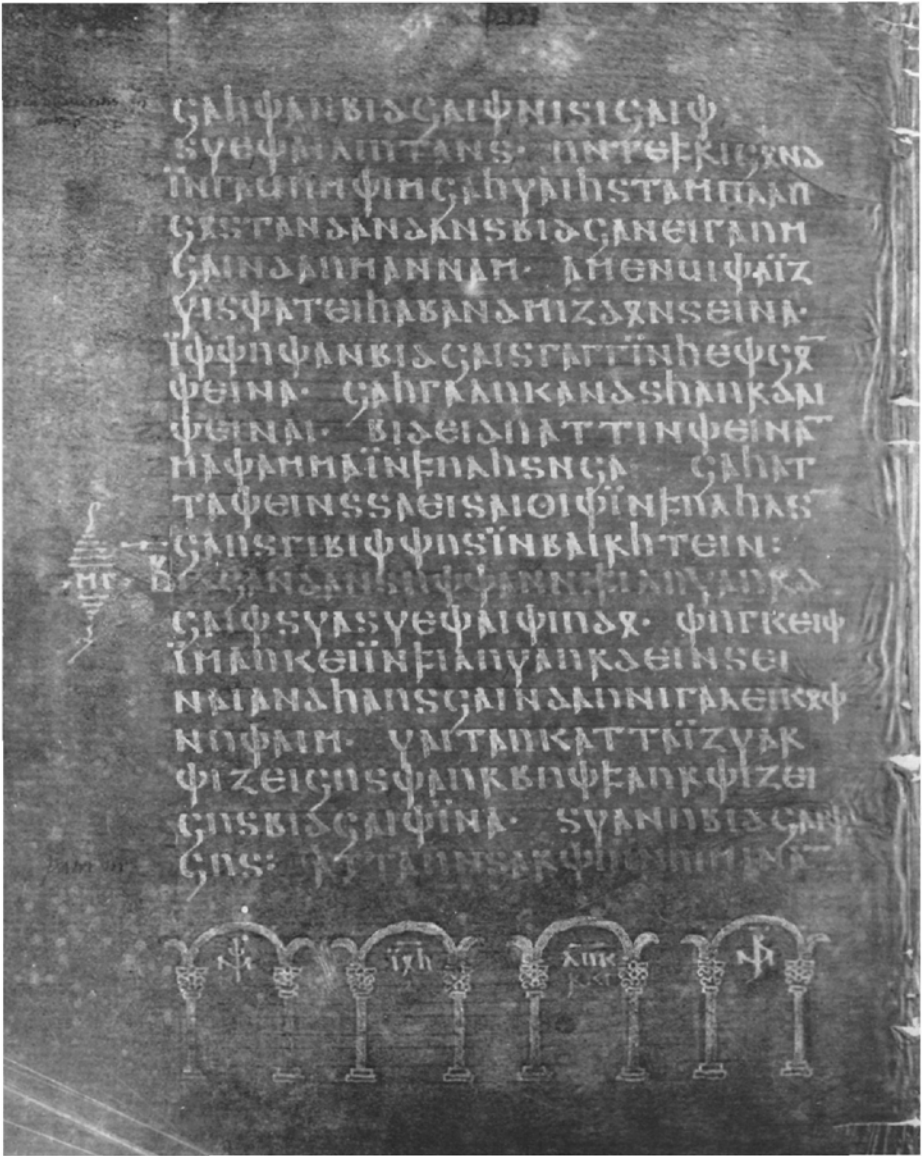 𐌾𐌰𐌷𐌸𐌰𐌽𐌱𐌹𐌳𐌾𐌰𐌹𐌸𐌽𐌹𐍃𐌹𐌾𐌰𐌹𐌸
𐍃𐍅𐌴𐌸𐌰𐌹𐌻𐌹𐌿𐍄𐌰𐌽𐍃· 𐌿𐌽𐍄𐌴𐍆𐍂𐌹𐌾𐍉𐌽𐌳
𐌹̈𐌽𐌲𐌰𐌵𐌿𐌼𐌸𐌹𐌼𐌾𐌰𐌷𐍅𐌰𐌹𐌷𐍃𐍄𐌰𐌼𐍀𐌻𐌰𐍀
𐌾𐍉𐍃𐍄𐌰𐌽𐌳𐌰𐌽𐌳𐌰𐌽𐍃𐌱𐌹𐌳𐌾𐌰𐌽𐌴𐌹𐌲𐌰𐌿𐌼
𐌾𐌰𐌹𐌽𐌳𐌰𐌿𐌼𐌰𐌽𐌽𐌰𐌼· 𐌰𐌼𐌴𐌽𐌵𐌹𐌸𐌰𐌹̈𐌶
𐍅𐌹𐍃𐌸𐌰𐍄𐌴𐌹𐌷𐌰𐌱𐌰𐌽𐌳𐌼𐌹𐌶𐌳𐍉𐌽𐍃𐌴𐌹𐌽𐌰·
𐌹̈𐌸𐌸𐌿𐌸𐌰𐌽𐌱𐌹𐌳𐌾𐌰𐌹𐍃𐌲𐌰𐌲𐌲𐌹̈𐌽𐌷𐌴𐌸𐌾𐍉̅
𐌸𐌴𐌹𐌽𐌰· 𐌾𐌰𐌷𐌲𐌰𐌻𐌿𐌺𐌰𐌽𐌳𐍃𐌷𐌰𐌿𐍂𐌳𐌰𐌹
𐌸𐌴𐌹𐌽𐌰𐌹· 𐌱𐌹𐌳𐌴𐌹𐌳𐌿𐌰𐍄𐍄𐌹𐌽𐌸𐌴𐌹𐌽𐌰̅
𐌼𐌰𐌸𐌰𐌼𐌼𐌰𐌹̈𐌽𐍆𐌿𐌻𐌷𐍃𐌽𐌾𐌰· 𐌾𐌰𐌷𐌰𐍄
𐍄𐌰𐌸𐌴𐌹𐌽𐍃𐍃𐌰𐌴𐌹𐍃𐌰𐌹𐍈𐌹𐌸𐌹̈𐌽𐍆𐌿𐌻𐌷𐌰𐍃̅
𐌾𐌰𐌿𐍃𐌲𐌹𐌱𐌹𐌸𐌸𐌿𐍃𐌹̈𐌽𐌱𐌰𐌹𐍂𐌷𐍄𐌴𐌹𐌽:
𐌼𐌲 𐌱 𐌱𐌹𐌳𐌾𐌰𐌽𐌳𐌰𐌽𐍃𐌿𐌸𐌸𐌰𐌽𐌽𐌹𐍆𐌹𐌻𐌿𐍅𐌰𐌿𐍂𐌳
𐌾𐌰𐌹𐌸𐍃𐍅𐌰𐍃𐍅𐌴𐌸𐌰𐌹𐌸𐌹𐌿𐌳𐍉· 𐌸𐌿𐌲𐌺𐌴𐌹𐌸
𐌹̈𐌼𐌰𐌿𐌺𐌴𐌹𐌹̈𐌽𐍆𐌹𐌻𐌿𐍅𐌰𐌿𐍂𐌳𐌴𐌹𐌽𐍃𐌴𐌹
𐌽𐌰𐌹𐌰𐌽𐌳𐌷𐌰𐌿𐍃𐌾𐌰𐌹𐌽𐌳𐌰𐌿𐌽𐌹𐌲𐌰𐌻𐌴𐌹𐌺𐍉𐌸
𐌽𐌿𐌸𐌰𐌹𐌼· 𐍅𐌰𐌹𐍄𐌰𐌿𐌺𐌰𐍄𐍄𐌰𐌹̈𐌶𐍅𐌰𐍂
𐌸𐌹𐌶𐌴𐌹𐌾𐌿𐍃𐌸𐌰𐌿𐍂𐌱𐌿𐌸𐍆𐌰𐌿𐍂𐌸𐌹𐌶𐌴𐌹
𐌾𐌿𐍃𐌱𐌹𐌳𐌾𐌰𐌹𐌸𐌹̈𐌽𐌰· 𐍃𐍅𐌰𐌽𐌿𐌱𐌹𐌳𐌾𐌰𐌹𐌸
𐌾𐌿𐍃: 𐌰𐍄𐍄𐌰𐌿𐌽𐍃𐌰𐍂𐌸𐌿𐌹̈𐌽𐌷𐌹𐌼𐌹𐌽𐌰̅
𐌹̈𐍉𐌷 𐌻𐌿𐌺